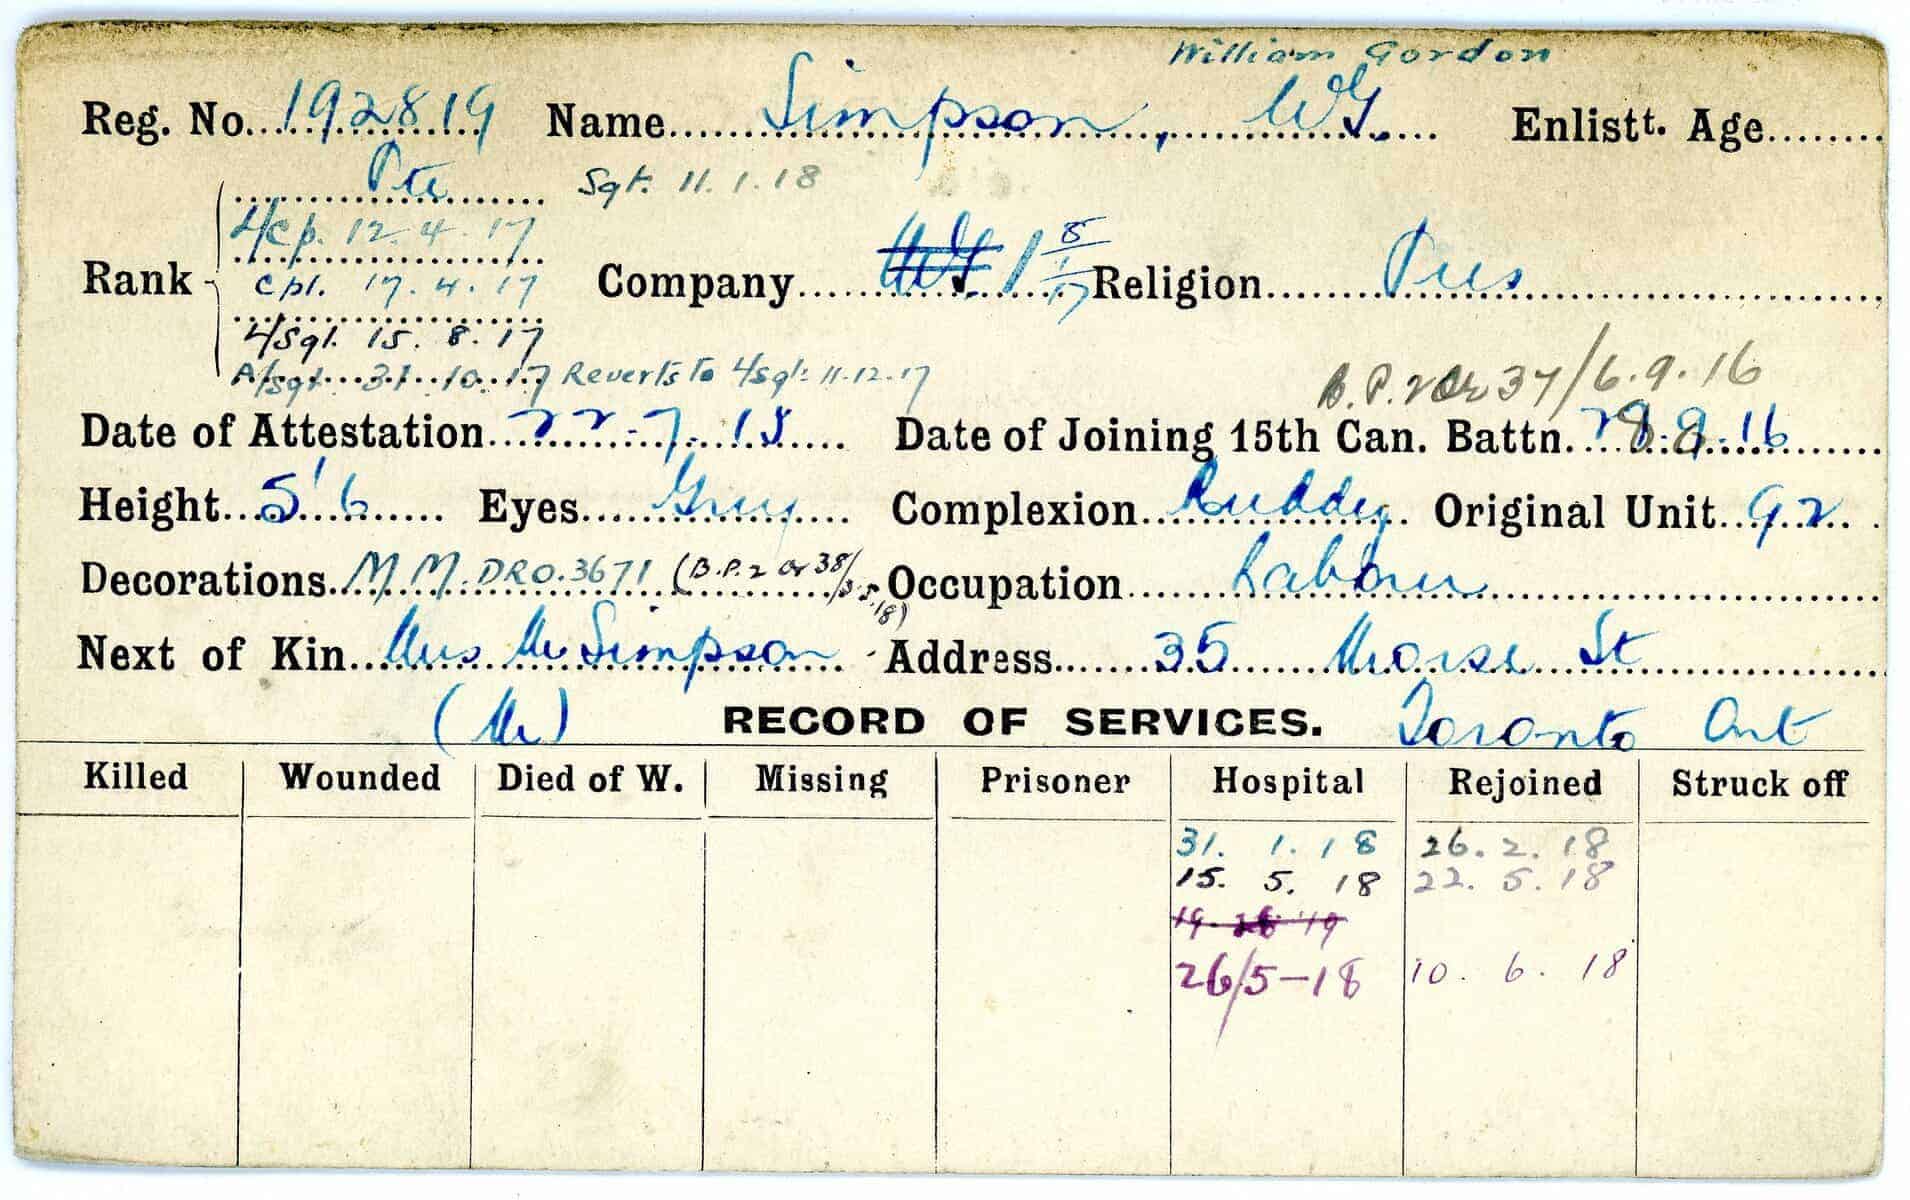 William Gordon
Reg. No. 192819 Name Simpson, WG. Enlistt. Age
Pte Sgt. 11.1.18
L/Cp. 12.4.17
Rank Cpl. 17.4.17 Company 1 8/1/17 Religion Pres
L/Sgt. 15.8.17
A/Sgt. 31.10.17 Reverts to L/Sgt. 11.12.17 B.P. 2 Or 37/6.9.16
Date of Attestation 22.7.15 Date of Joining 15th Can. Battn. 28.8.16
Height 5'6 Eyes Grey Complexion Ruddy Original Unit 92
Decorations M.M. DRO.3671 (B.P. 2 Or 38/3.5.18) Occupation Labourer
Next of Kin Mrs M Simpson Address 35 Morse St
(M) RECORD OF SERVICES. Toronto Ont
Killed Wounded Died of W. Missing Prisoner Hospital Rejoined Struck off
31. 1. 18 26. 2. 18
15. 5. 18 22. 5. 18
26/5-18 10. 6. 18